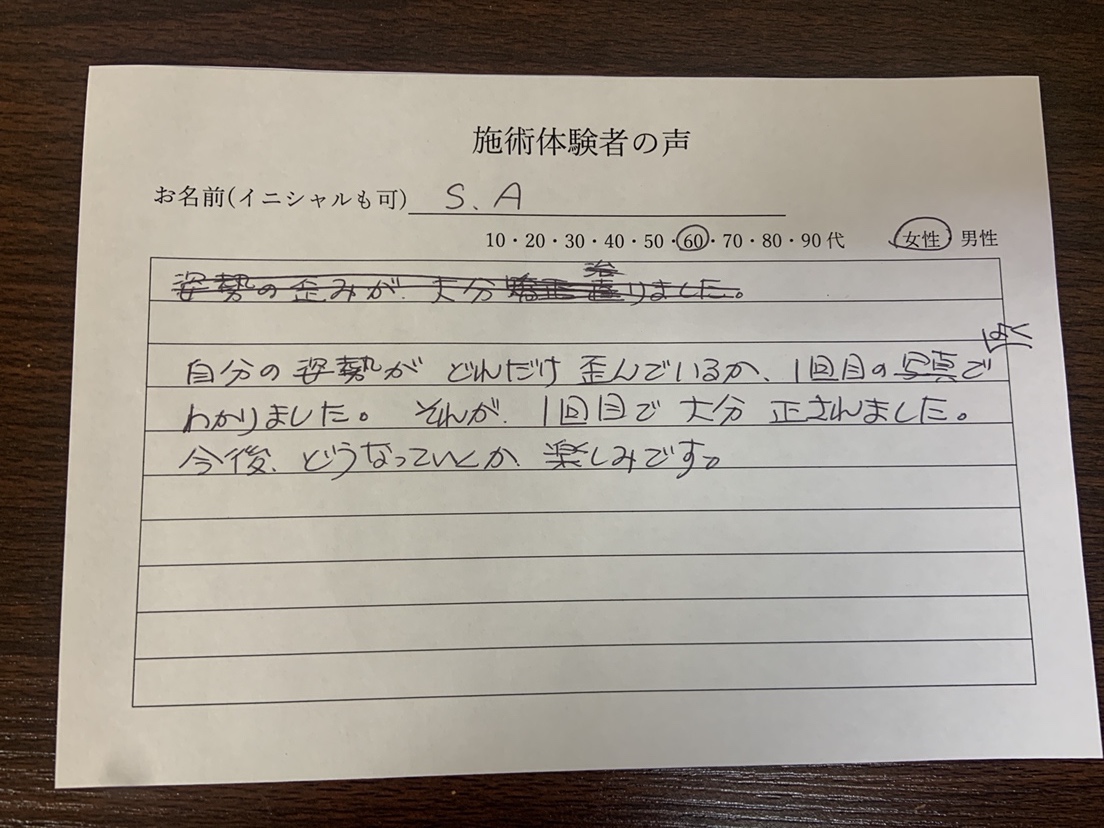 施術体験者の声
お名前(イニシャルも可) S.A
10・20・30・40・50・60・70・80・90代 女性 男性
姿勢の歪みが、大分矯正直治りました。
自分の姿勢がどれだけ歪んでいるか、1回目の写真でよく
わかりました。それが、1回目で大分正されました。
今後、どうなっていくか、楽しみです。